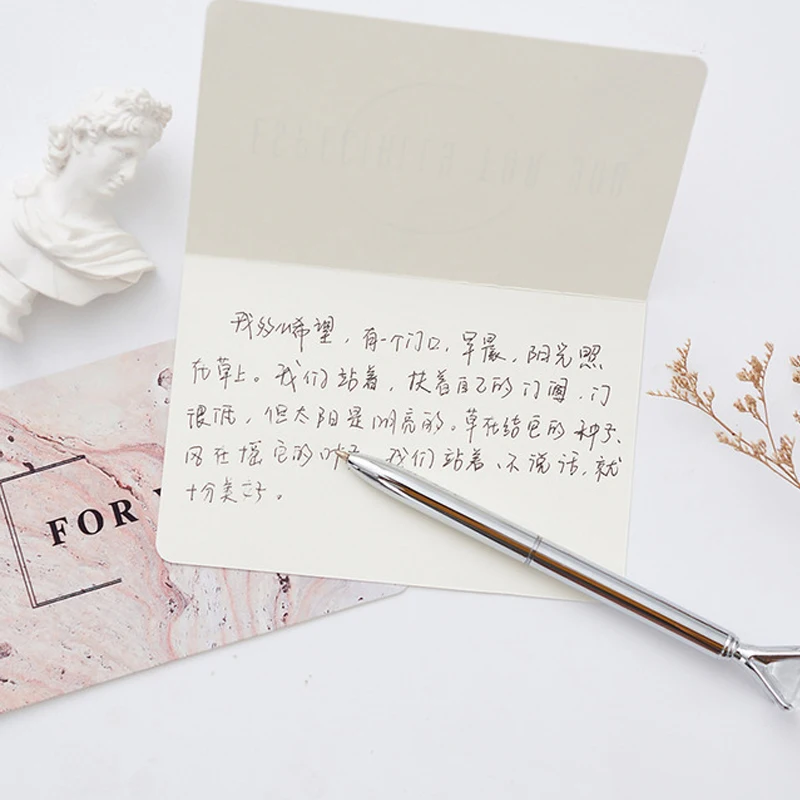 我多么希望，有一个门口，早晨，阳光照
在草上。我们站着，扶着自己的门，门
很低，但太阳是明亮的。草在结它的种子、
风在摇它的叶子 我们站着、不说话，就
十分美好。
FOR